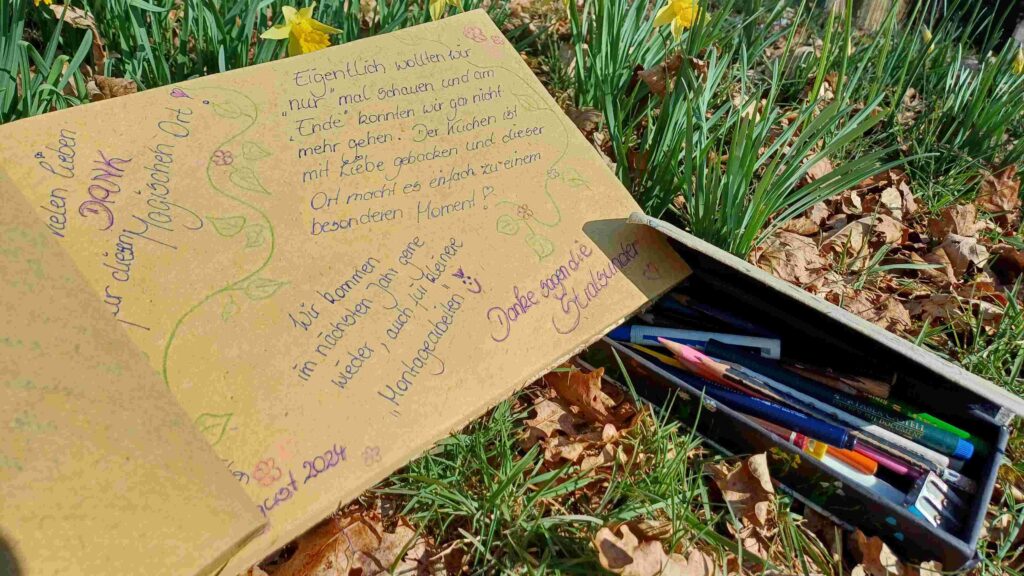 vielen lieben
DANK
für diesen
Magischen Ort!
Eigentlich wollten wir
nur "mal schauen und am
"Ende" konnten wir gar nicht
mehr gehen! Der Kuchen ist
mit Liebe gebacken und dieser
Ort macht es einfach zu einem
besonderen Moment!
Wir kommen
im nächsten Jahr gerne
wieder, auch für kleinere
"Montagearbeiten"
Danke sagen die
2024